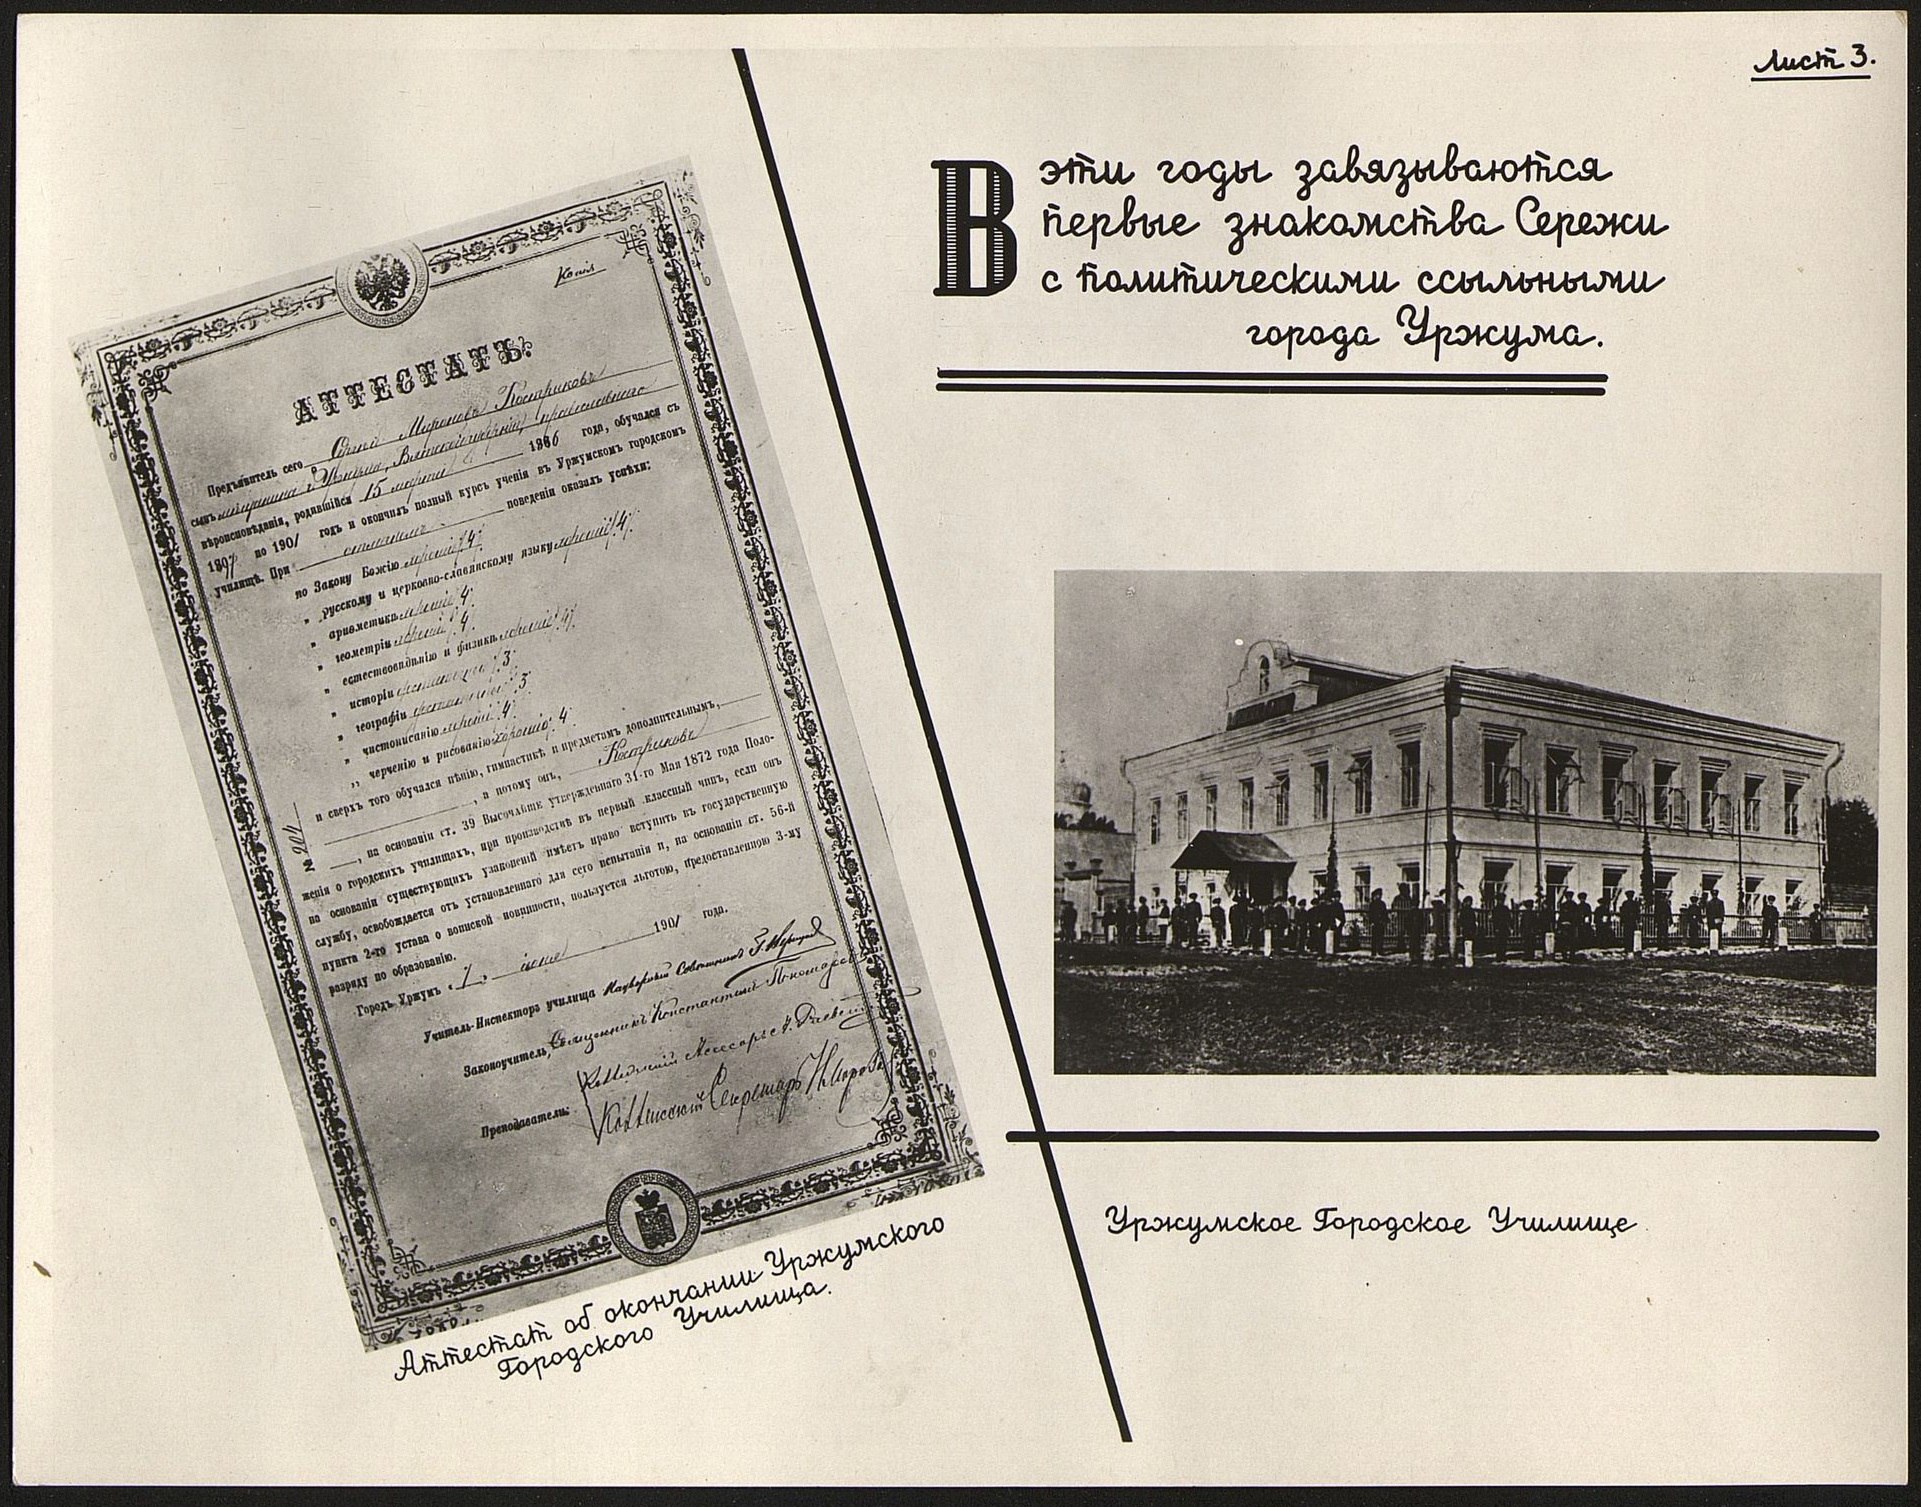 Лист 3.
В эти годы завязываются
первые знакомства Сережи
с политическими ссыльными
города Уржума.
Копія
АТТЕСТАТЪ.
Предъявитель сего Сергѣй Мироновъ Костриковъ
сынъ мѣщанина г. Уржума, Вятской губерніи, православнаго
вѣроисповѣданія, родившійся 15 марта 1886 года, обучался съ
1897 по 1901 годъ и окончилъ полный курсъ ученія въ Уржумскомъ городскомъ
училищѣ. При отличномъ поведеніи оказалъ успѣхи:
по Закону Божію хорошіе 4.
„ русскому и церковно-славянскому языку хорошіе 4.
„ ариѳметикѣ хорошіе 4.
„ геометріи хорошіе 4.
„ естествовѣдѣнію и физикѣ хорошіе 4.
„ исторіи 3.
„ географіи 3.
„ чистописанію хорошіе 4.
„ черченію и рисованію хорошіе 4.
и сверхъ того обучался пѣнію, гимнастикѣ и предметамъ дополнительнымъ,
, а потому онъ, Костриковъ
, на основаніи ст. 39 Высочайше утвержденнаго 31-го Мая 1872 года Поло-
женія о городскихъ училищахъ, при производствѣ въ первый классный чинъ, если онъ
на основаніи существующихъ узаконеній имѣетъ право вступить въ государственную
службу, освобождается отъ установленнаго для сего испытанія и, на основаніи ст. 56-й
пункта 2-го устава о воинской повинности, пользуется льготою, предоставленною 3-му
разряду по образованію.
№ 204
Городъ Уржумъ „1“ іюня 1901 года.
Учитель-Инспекторъ училища Надворный Совѣтникъ
Законоучитель, Священникъ Константинъ Пономаревъ
Преподаватели: Коллежскій Ассесоръ
Коллежскій Секретарь Н. Морозов
Аттестат об окончании Уржумского
Городского Училища.
Уржумское Городское Училище